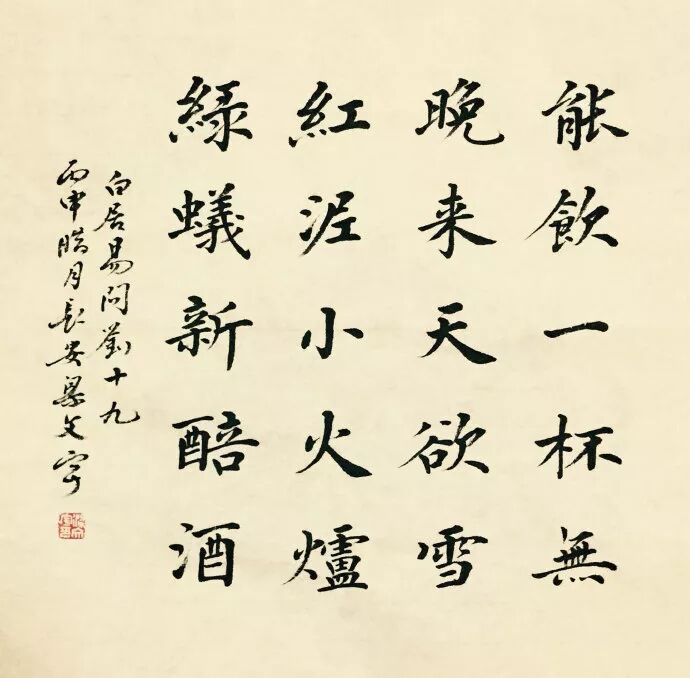 綠蟻新醅酒
紅泥小火爐
晚来天欲雪
能飲一杯無
白居易問劉十九
丙申皓月長安梁文